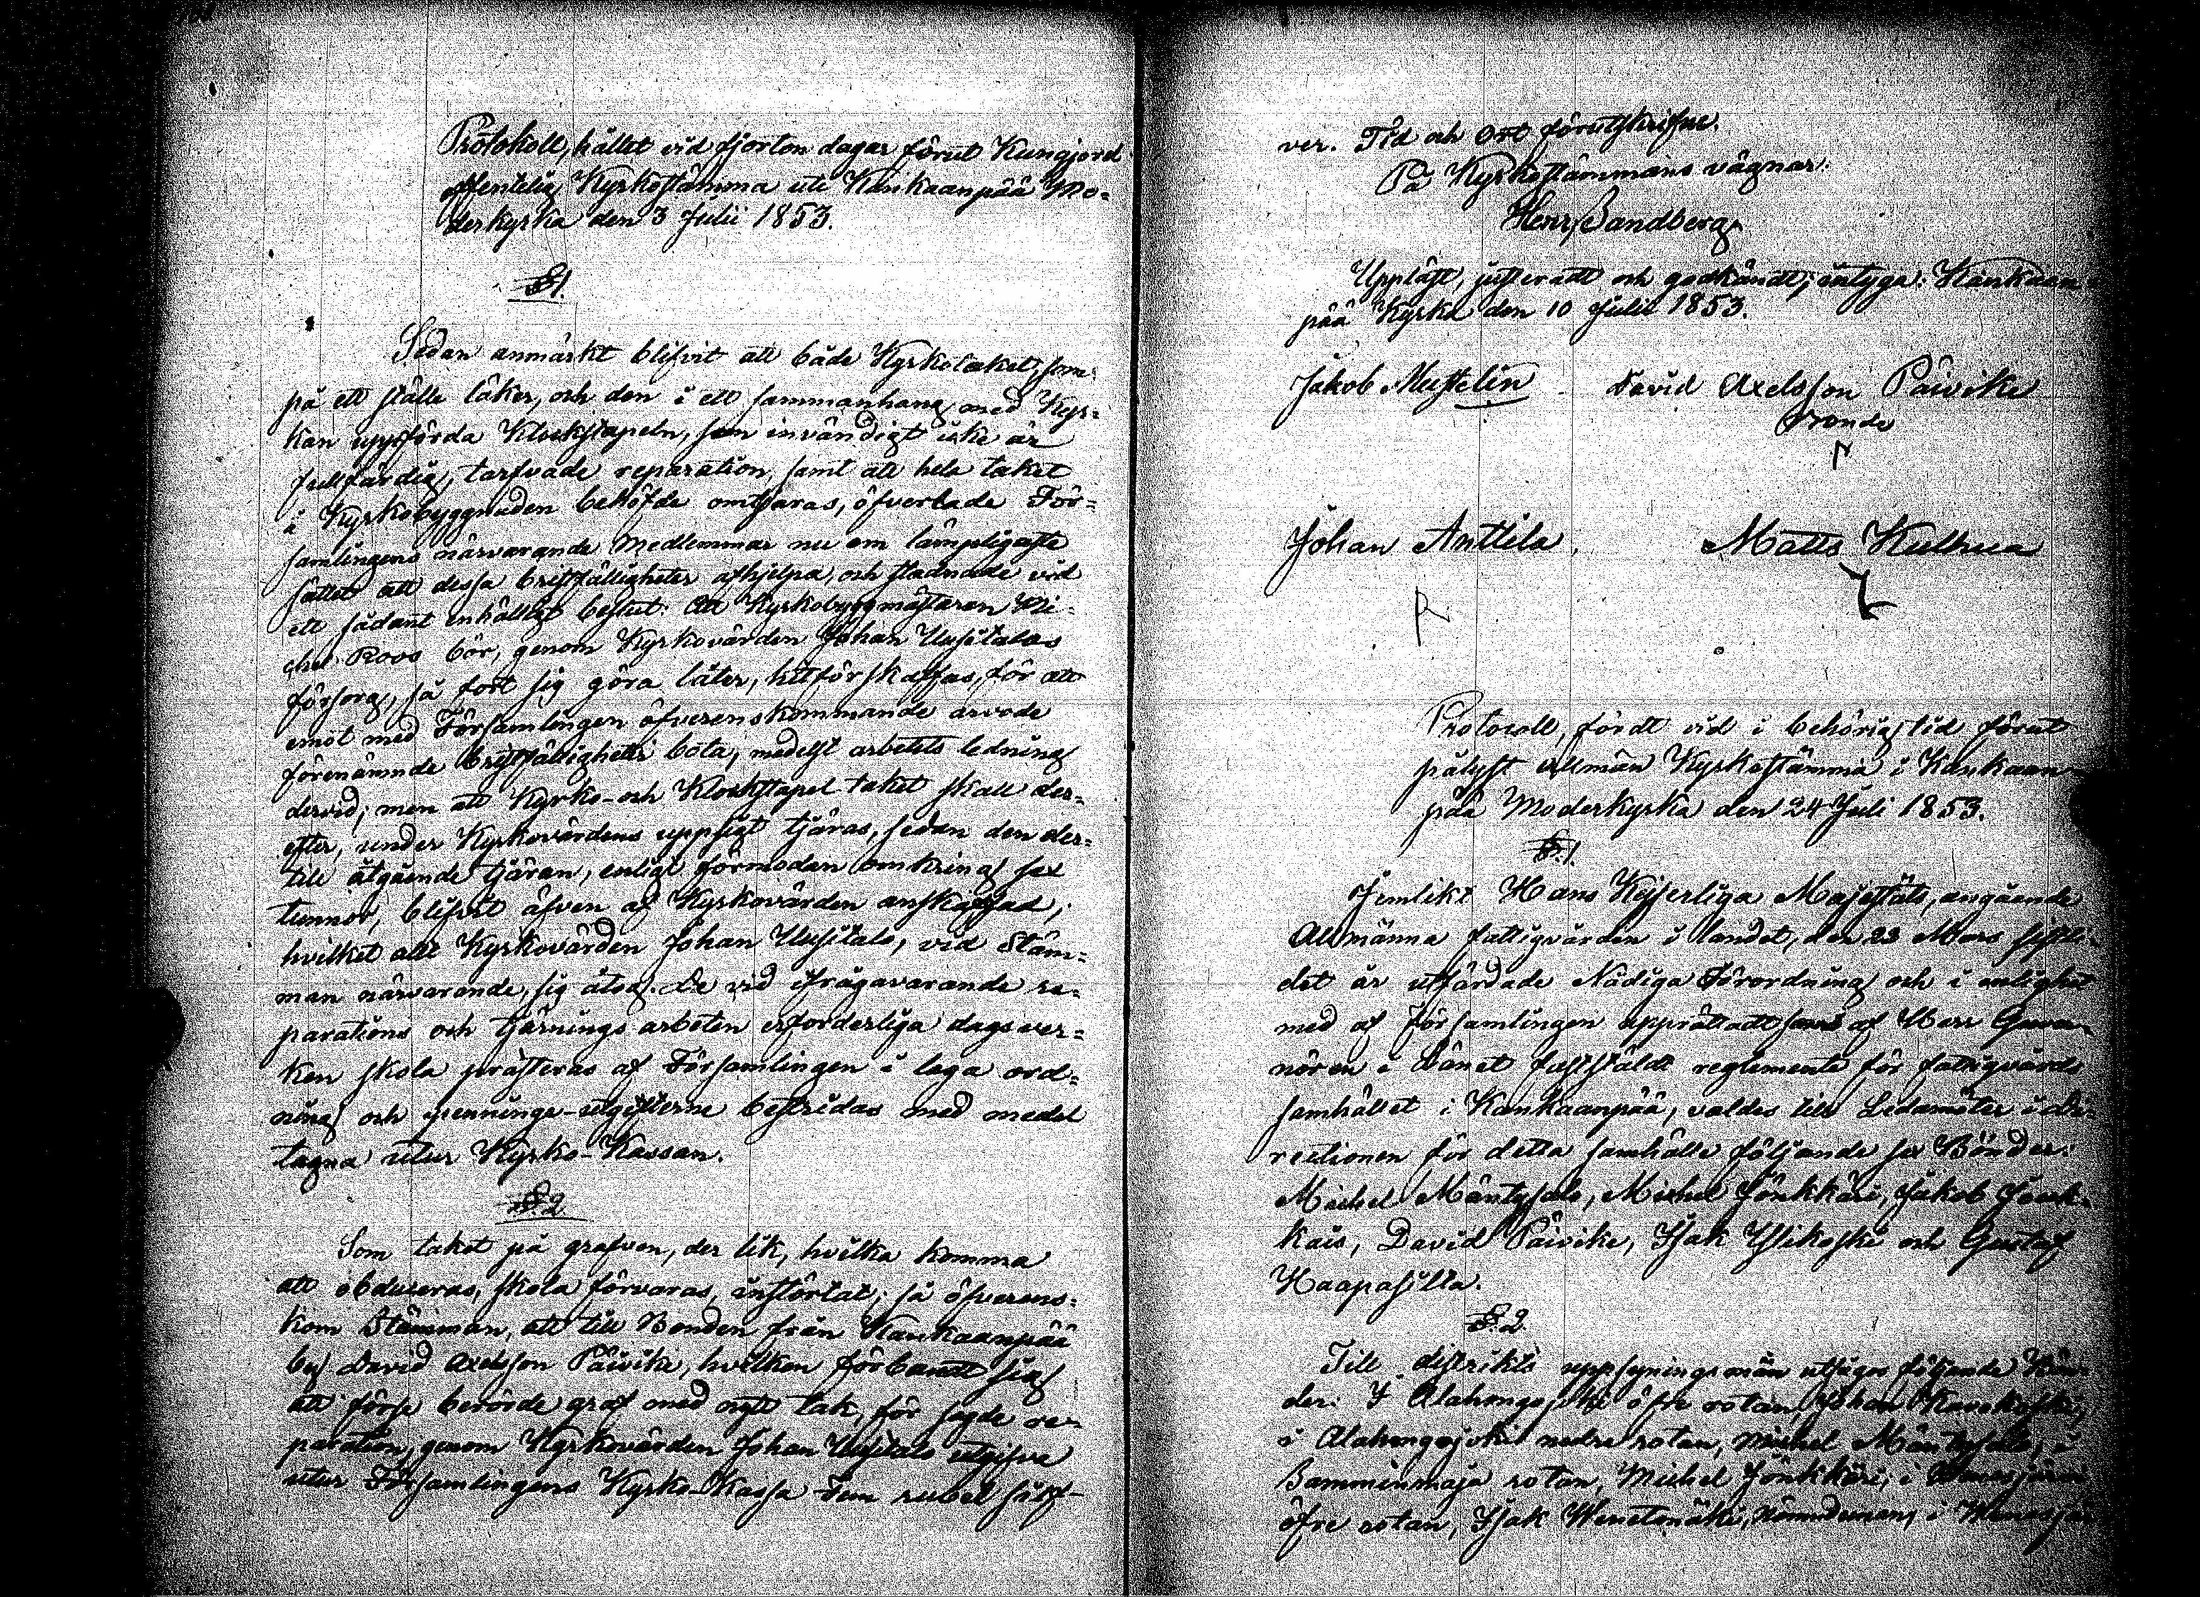 Protokoll, hållet vid fjorton dagar förut Kungjord
offentelig Kyrkostämma uti Kankaanpää Mo=
derkyrka den 3 Julii 1853.
§1.
Sedan anmärkt blifvit att både Kyrkotaket, som
på ett ställe läker, och den i ett sammanhang med Kyr=
kan uppförda Klockstapeln, som invändigt icke är
fullfärdig, tarfvade reparation, samt att hela taket
å Kyrkobyggnaden behöfde omtjäras, öfverlade För=
samlingens närvarande Medlemmar nu om lämpligaste
sättet att dessa bristfälligheter afhjelpa, och stadnade vid
ett sådant enhälligt beslut: Att Kyrkobyggmästaren Mi=
chel Roos bör, genom Kyrkovärden Johan Uusitalos
försorg, så fort sig göra låter, hitförskaffas, för att
emot med Församlingen öfverenskommande arvode
förenämnde bristfälligheter bota, medelst arbetets ledning
dervid; men att Kyrko- och Klockstapel-taket skall der=
efter, under Kyrkovärdens uppsigt tjäras, sedan den der=
till åtgående tjäran, enligt förmodan omkring sex
tunnor, blifvit äfven af Kyrkovärden anskaffad;
hvilket allt Kyrkovärden Johan Uusitalo, vid Stäm=
man närvarande, sig åtog. De vid ifrågavarande re=
parations och tjärnings arbeten erforderliga dagsver=
ken skola præsteras af Församlingen i laga ord=
ning och pennings-utgifterne bestridas med medel
tagna utur Kyrko-Kassan.
§.2.
Som taket på grafven, der lik, hvilka komma
att obduceras, skola förvaras, instörtat; så öfverens=
kom Stämman, att till Bonden från Kankaanpää
by David Axelsson Päivike, hvilken förbandt sig
att förse berörde graf med nytt tak, för sagde re=
paration, genom Kyrkovärden Johan Uusitalo utgifva
utur Församlingens Kyrko-Kassa Fem rubel silf-
ver. Tid och Ort förutskrifne.
På Kyrkostämmans vägnar:
Henr Sandberg
Uppläst, justeradt och godkändt; intyga: Kankaan
pää Kyrka den 10 Julii 1853.
Jakob Mustelin David Axelsson Päivike
Bonde
Johan Anttila. Matts Kulhua
Protocoll, fördt vid i behörig tid förut
pålyst allmän Kyrkostämma i Kankaan=
pää Moderkyrka den 24 Juli 1853.
§.1.
Jemlikt Hans Kejserliga Majestäts, angående
Allmänna fattigvården i landet, den 23 Mars
det år utfärdade Nådiga Förordning och i enlighet
med af Församlingen upprättadt samt af Herr Guver=
nören i Länet fastställdt reglemente för fattigvårds
samhället i Kankaanpää, valdes till Ledamöter i Di=
rectionen för detta samhälle följande sex Bönder:
Michel Mäntysalo, Michel Jönkkäri, Jakob
David Päivike, Isak Ylikoski och Gustaf
Haapasilta.
§.2.
Till distrikts uppsyningsmän utsågos följande Bön
der: I Alahongojoki öfre rotan, Johan
i Alahongojoki nedre rotan, Michel Mäntysalo, i
Samminmaja rotan, Michel Jönkkäri; i
öfre rotan, Isak Nämndeman, i